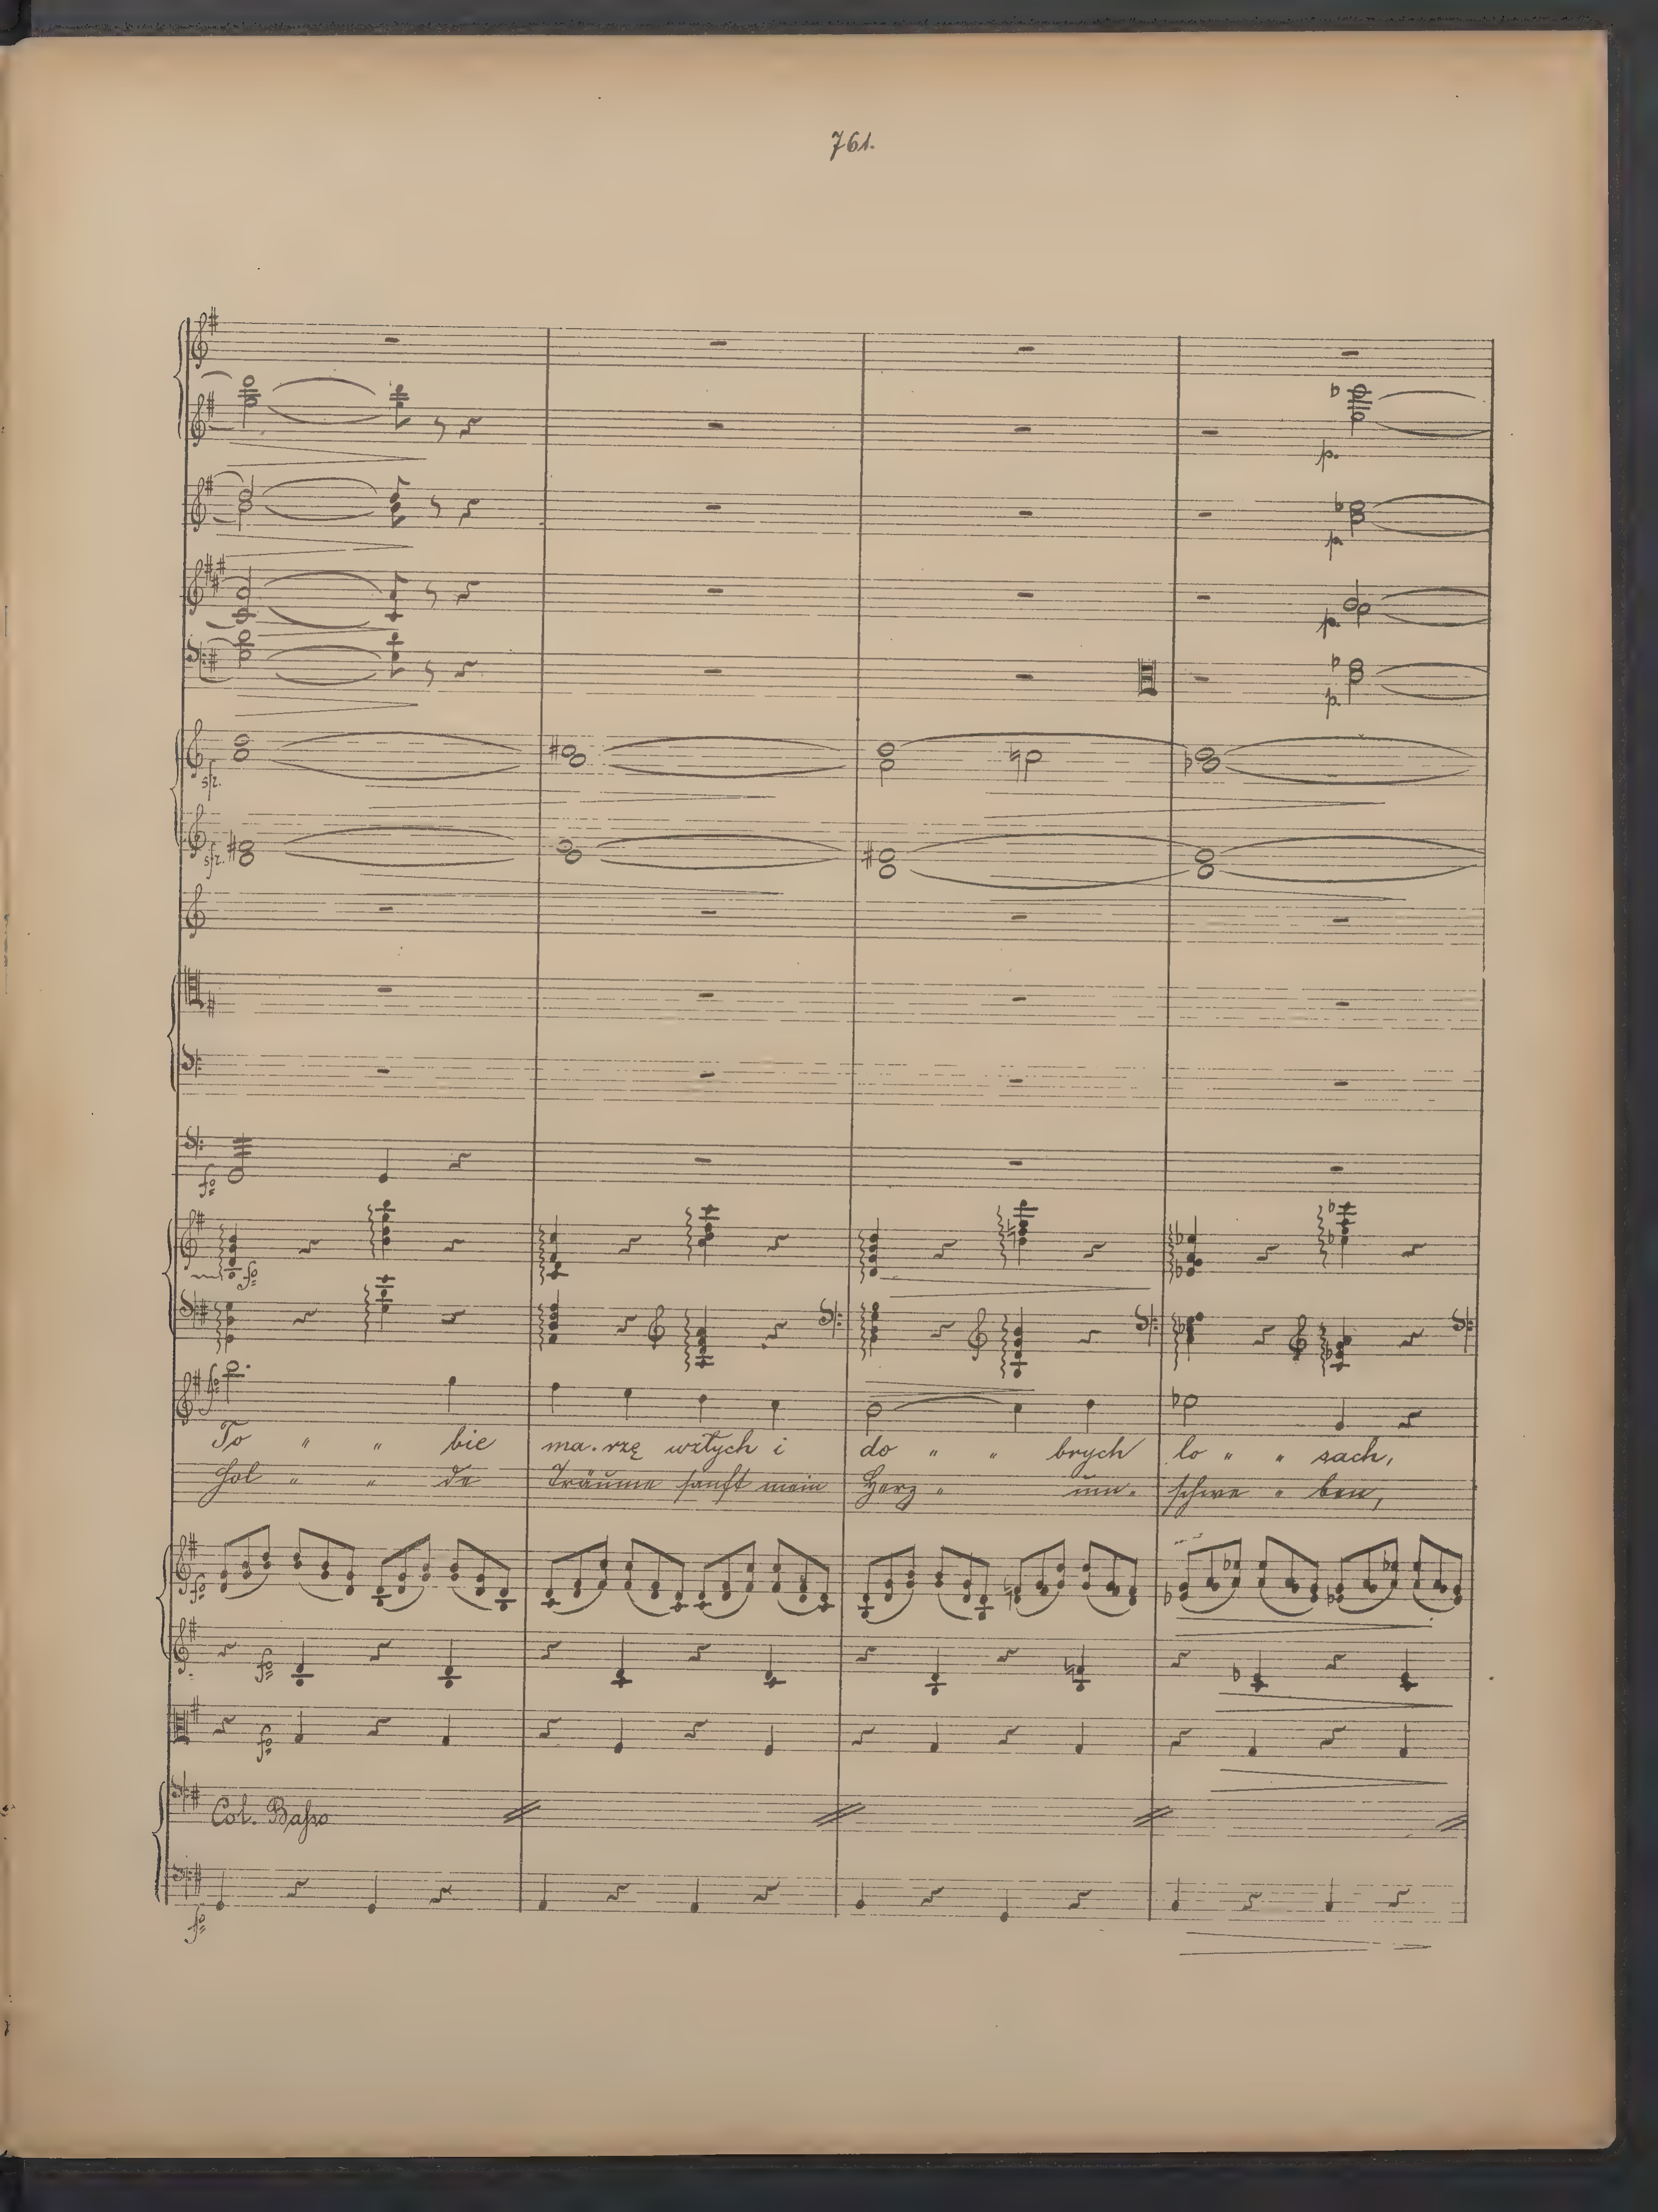 761.
p.
p.
p.
p.
sfz.
sfz.
fo
fo
fo
To " " bie ma.rzę wzłych i do " " brych lo " " sach,
Hol " " de Träume sanft mein Herz " um. schwe " ben,
fo
fo
fo
Col. Basso
fo